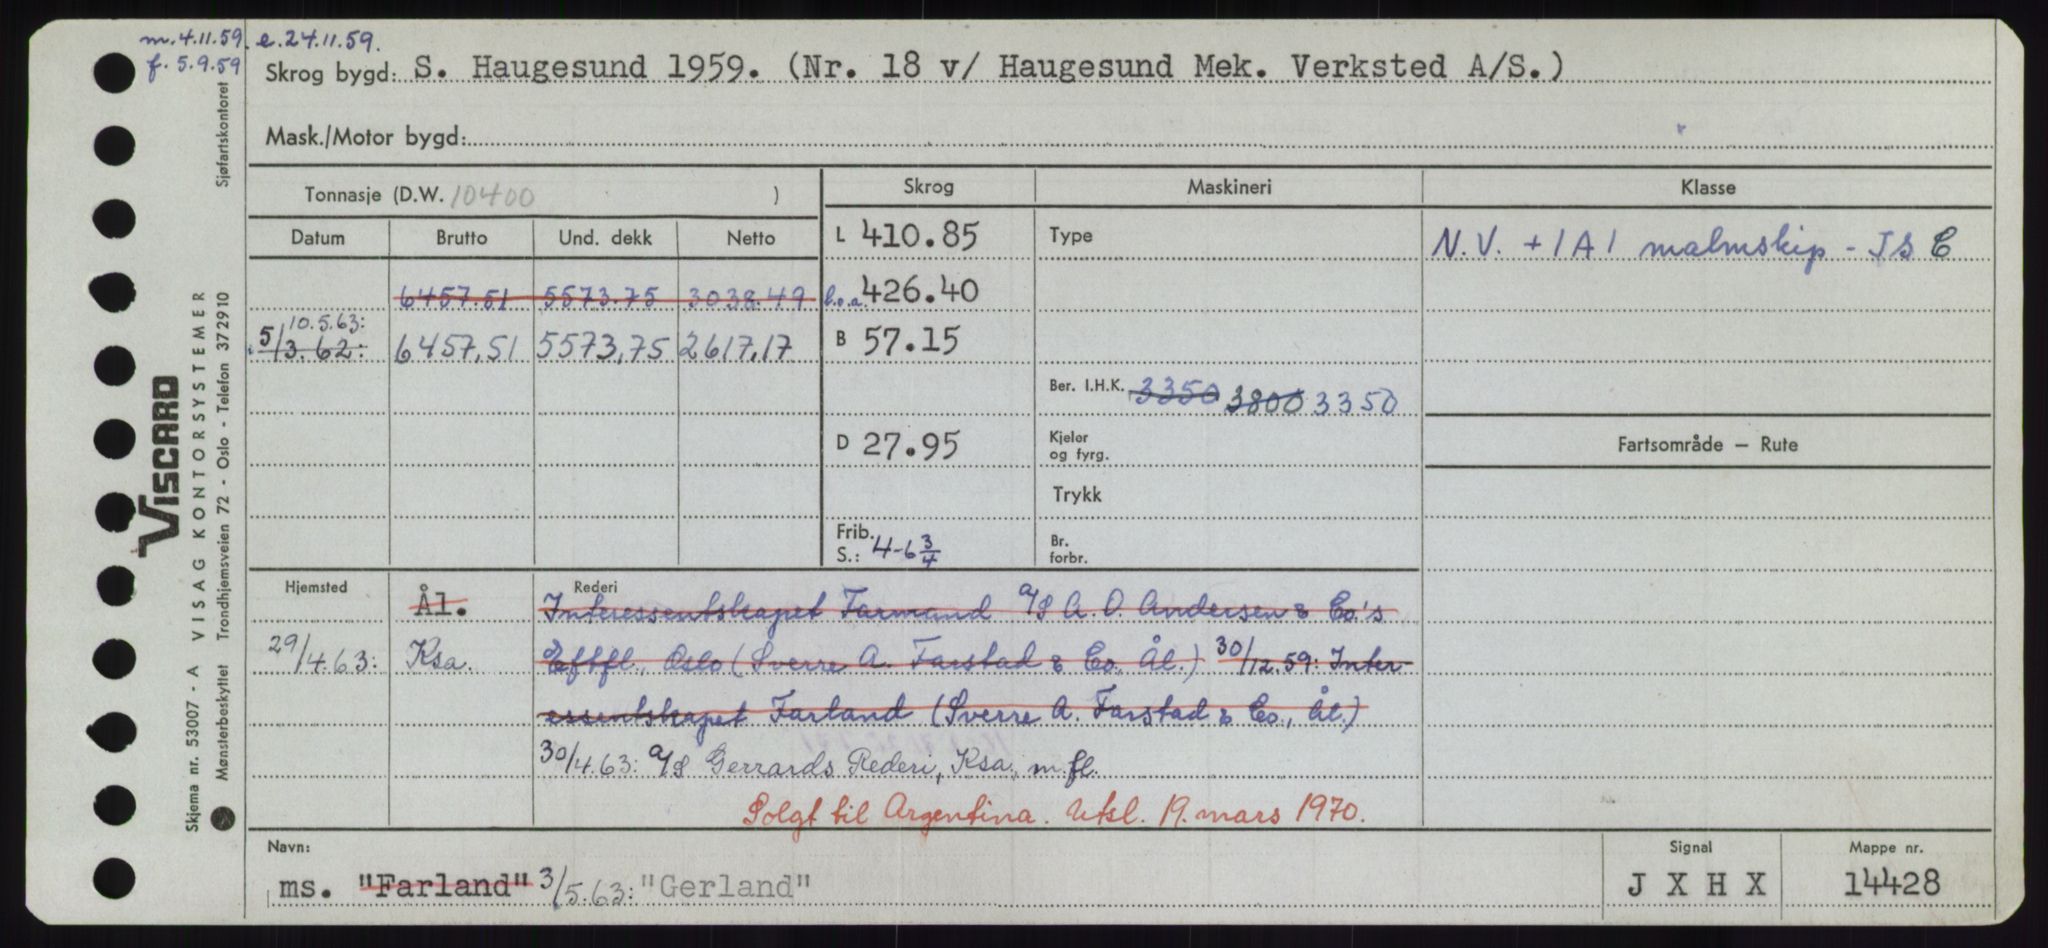 m. 4.11.59. e. 24.11.59.
f. 5.9.59
Skrog bygd: S. Haugesund 1959. (Nr. 18 v/ Haugesund Mek. Verksted A/S.)
Mask./Motor bygd:
Tonnasje (D.W. 10400 )
Skrog
Maskineri
Klasse
Datum Brutto Und. dekk Netto
L 410.85
Type
N.V. + 1A1 malmskip - IS C
6457.51 5573.75 3038.49
l.o.a. 426.40
10.5.63:
5/3.62: 6457,51 5573,75 2617,17
B 57.15
Ber. I.H.K. 3350 3800 3350
D 27.95
Kjeler
og fyrg.
Fartsområde — Rute
Trykk
Frib.
S.: 4-6 3/4
Br.
forbr.
Hjemsted
Rederi
Ål. Interessentskapet Farmand a/s A. O. Andersen & Co.'s
29/4.63: Ksa. Eftfl., Oslo (Sverre A. Farstad & Co., Ål.) 30/12.59: Inter-
essentskapet Farland (Sverre A. Farstad & Co., Ål.)
30/4.63: a/s Gerrards Rederi, Ksa., m.fl.
Solgt til Argentina. Utsl. 19. mars 1970.
Navn:
Signal
Mappe nr.
ms. "Farland" 3/5.63: "Gerland"
J X H X
14428
VISCARD
Skjema nr. 53007 - A VISAG KONTORSYSTEMER
Mønsterbeskyttet Trondhjemsveien 72 - Oslo - Telefon 372910
Sjøfartskontoret